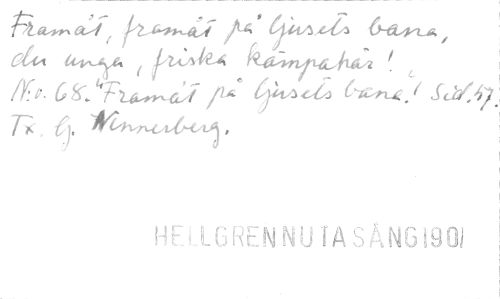 Framåt, framåt på ljusets bana,
du unga, friska kämpahär!
N:o. 68. "Framåt på ljusets bana." Sid. 57.
Tx. G. Wennerberg.
HELLGREN NUTA SÅNG 1901